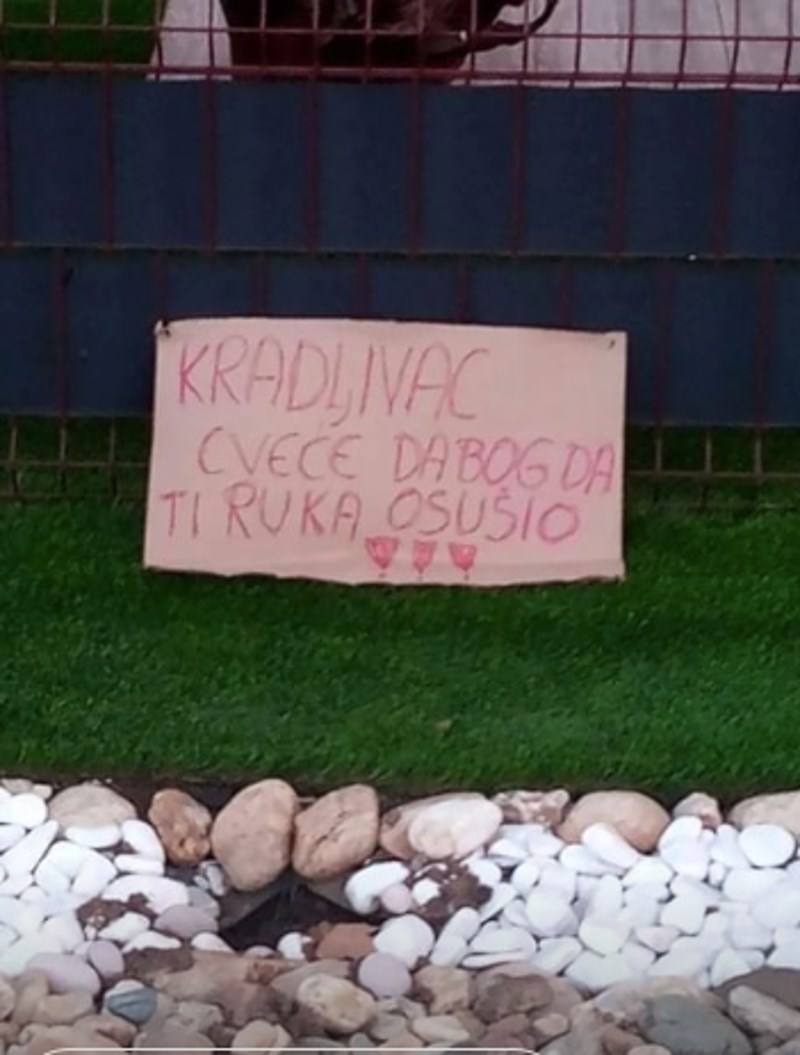 KRADLJIVAC
CVEĆE DABOGDA
TI RUKA OSUŠIO